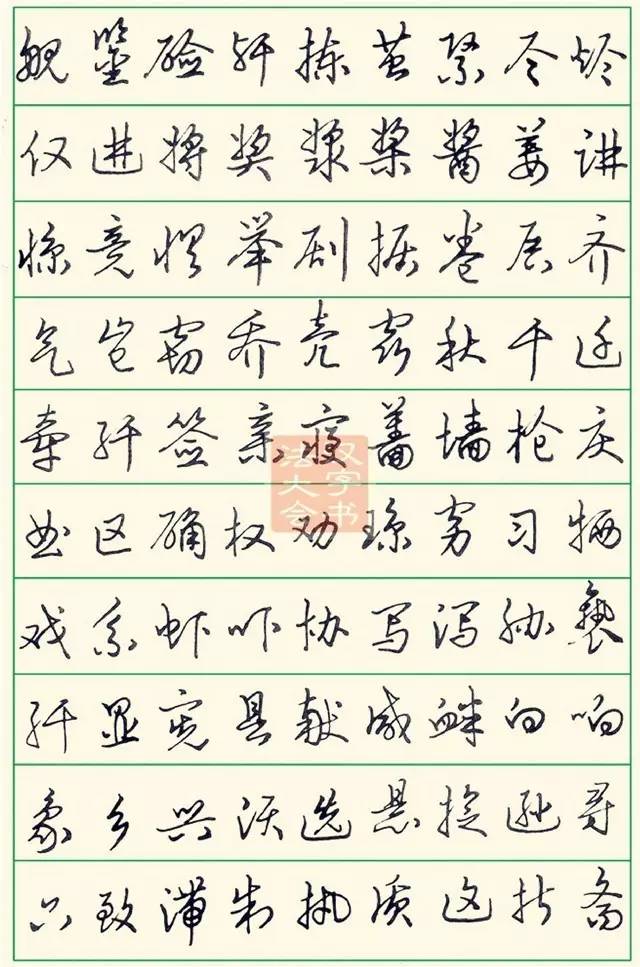 舰鉴硷歼拣茧紧尽烬
仅进将奖浆桨酱姜讲
惊竞惧举剧据卷齐
气岂窃乔壳窍秋千迁
牵纤签亲寝蔷墙枪庆
曲区确权劝琼穷习牺
戏系虾吓协写泻胁亵
纤显宪县献咸衅向响
象乡兴选悬逊寻
只致滞制执质这折斋
汉字书
法大会